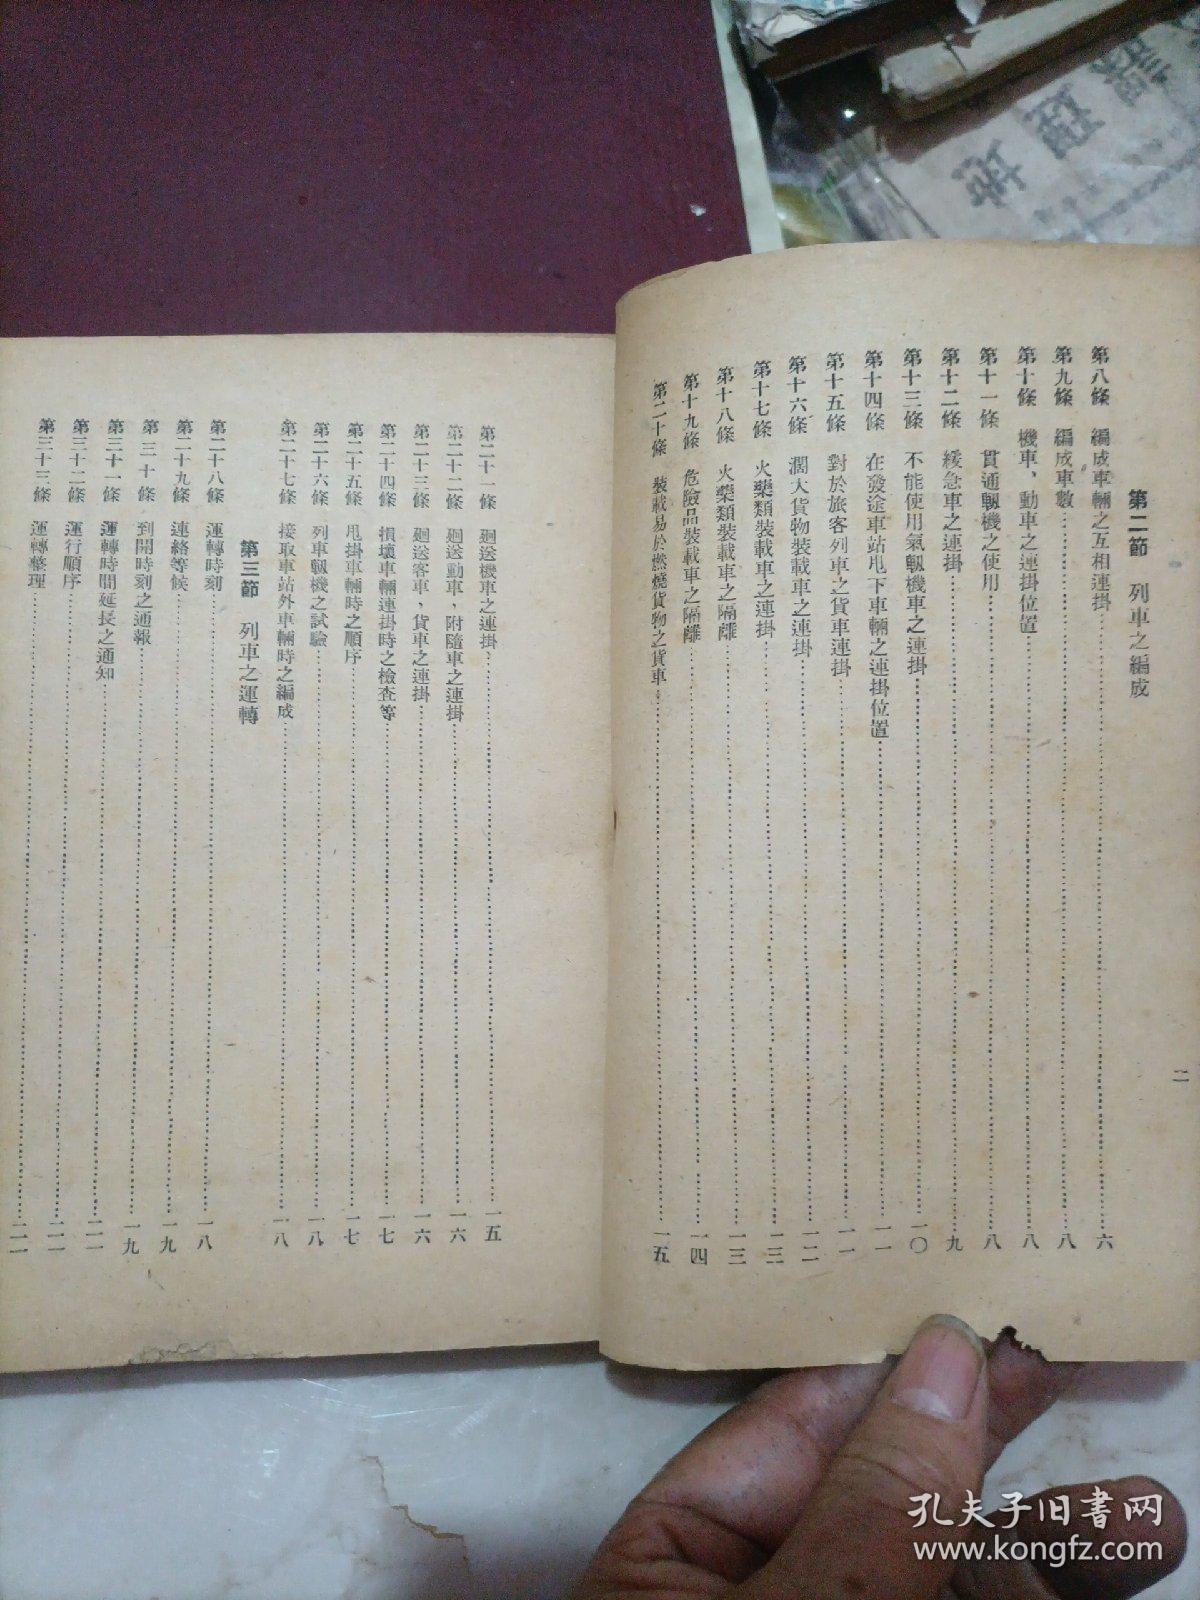 第二節　列車之編成
第八條　編成車輛之互相連掛……六
第九條　編成車數……八
第十條　機車、動車之連掛位置……八
第十一條　貫通軔機之使用……八
第十二條　緩急車之連掛……九
第十三條　不能使用氣軔機車之連掛……一〇
第十四條　在發途車站甩下車輛之連掛位置……一一
第十五條　對於旅客列車之貨車連掛……一一
第十六條　濶大貨物裝載車之連掛……一二
第十七條　火藥類裝載車之連掛……一三
第十八條　火藥類裝載車之隔離……一三
第十九條　危險品裝載車之隔離……一四
第二十條　裝載易於燃燒貨物之貨車……一五
二
第二十一條　廻送機車之連掛……一五
第二十二條　廻送動車，附隨車之連掛……一六
第二十三條　廻送客車，貨車之連掛……一六
第二十四條　損壞車輛連掛時之檢查等……一七
第二十五條　甩掛車輛時之順序……一七
第二十六條　列車軔機之試驗……一八
第二十七條　接取車站外車輛時之編成……一八
第三節　列車之運轉
第二十八條　運轉時刻……一八
第二十九條　連絡等候……一九
第三十條　到開時刻之通報……一九
第三十一條　運轉時間延長之通知……二一
第三十二條　運行順序……二一
第三十三條　運轉整理……二一
孔夫子旧书网
www.kongfz.com